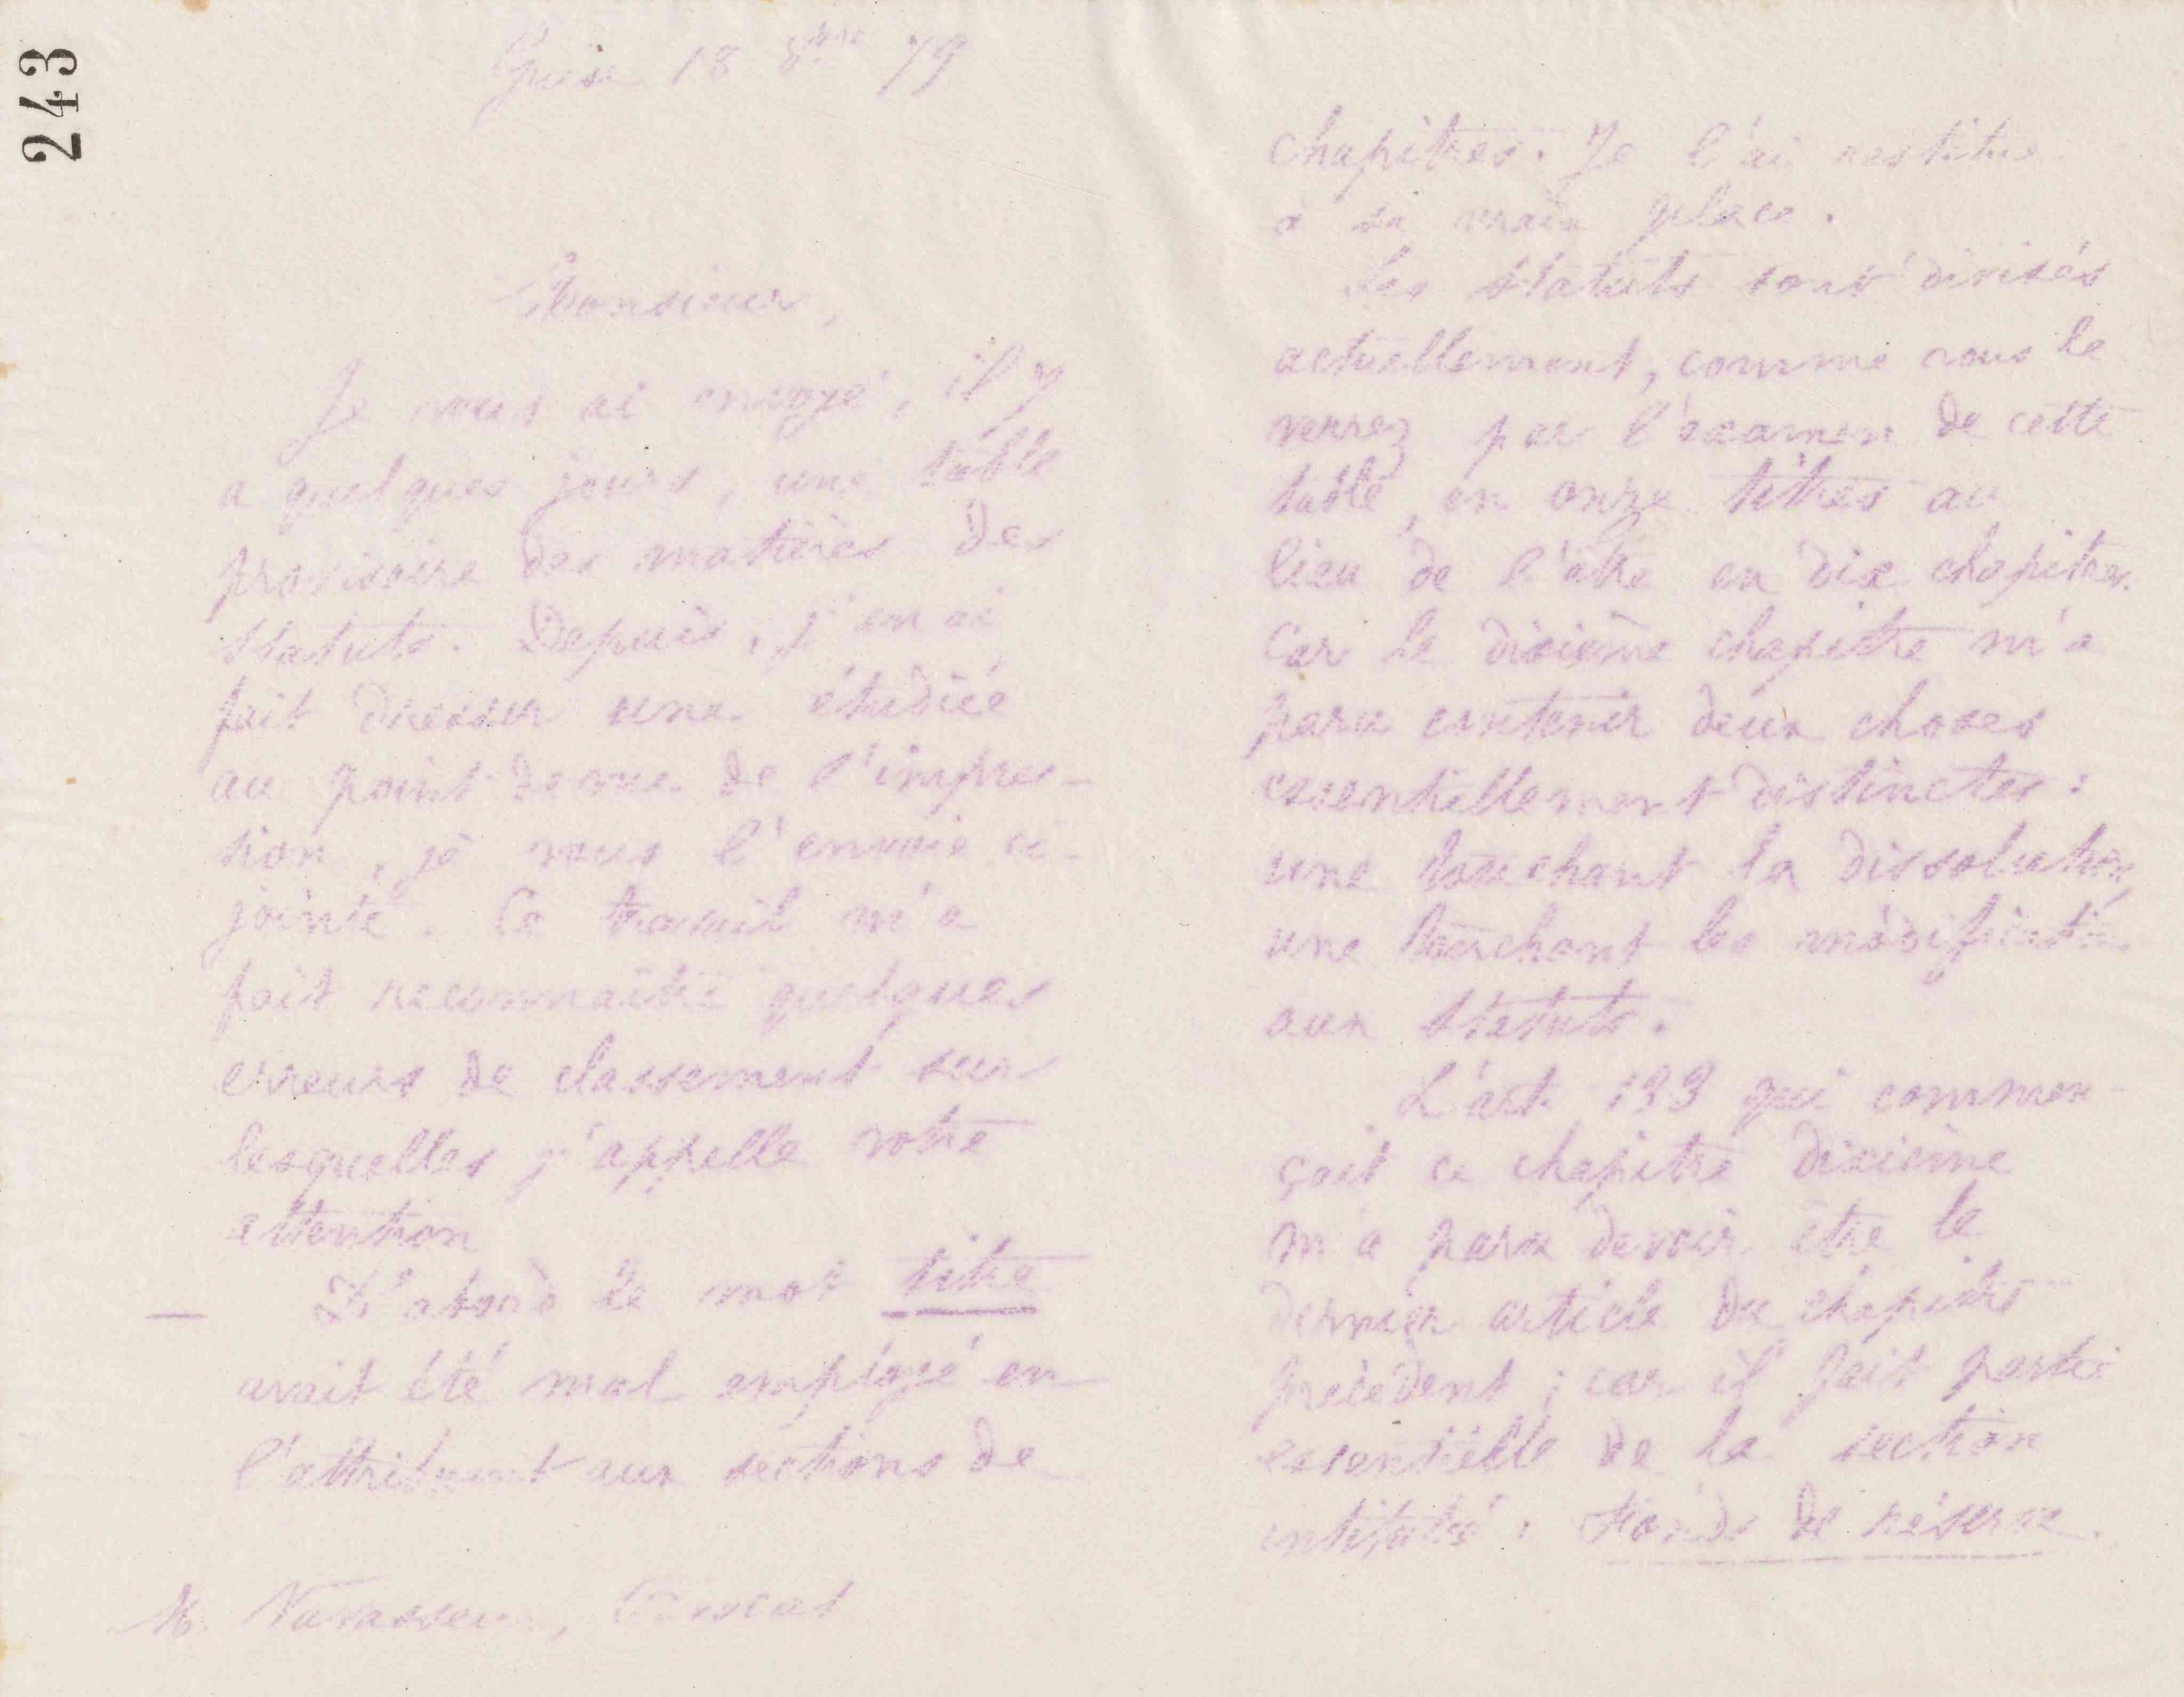 243
Guise 18 8bre 79
Monsieur,
Je vous ai envoyé, il y
a quelques jours, une table
provisoire des matières des
statuts. Depuis, j'en ai
fait dresser une étudiée
au point de vue de l'impres-
sion, je vous l'envoie ci-
jointe. Ce travail m'a
fait reconnaître quelques
erreurs de classement sur
lesquelles j'appelle votre
attention
— D'abord le mot titre
avait été mal employé en
l'attribuant aux sections de
M. Vavasseur, Avocat
chapitres. Je l'ai restitué
à sa vraie place.
Les statuts sont divisés
actuellement, comme vous le
verrez par l'examen de cette
table, en onze titres au
lieu de l'être en dix chapitres.
Car le dixième chapitre m'a
paru contenir deux choses
essentiellement distinctes :
une touchant la dissolution,
une touchant les modifications
aux statuts.
L'art. 139 qui commen-
çait ce chapitre dixième
m'a paru devoir être le
dernier article du chapitre
précédent ; car il fait partie
essentielle de la section
intitulée : Fonds de réserve.